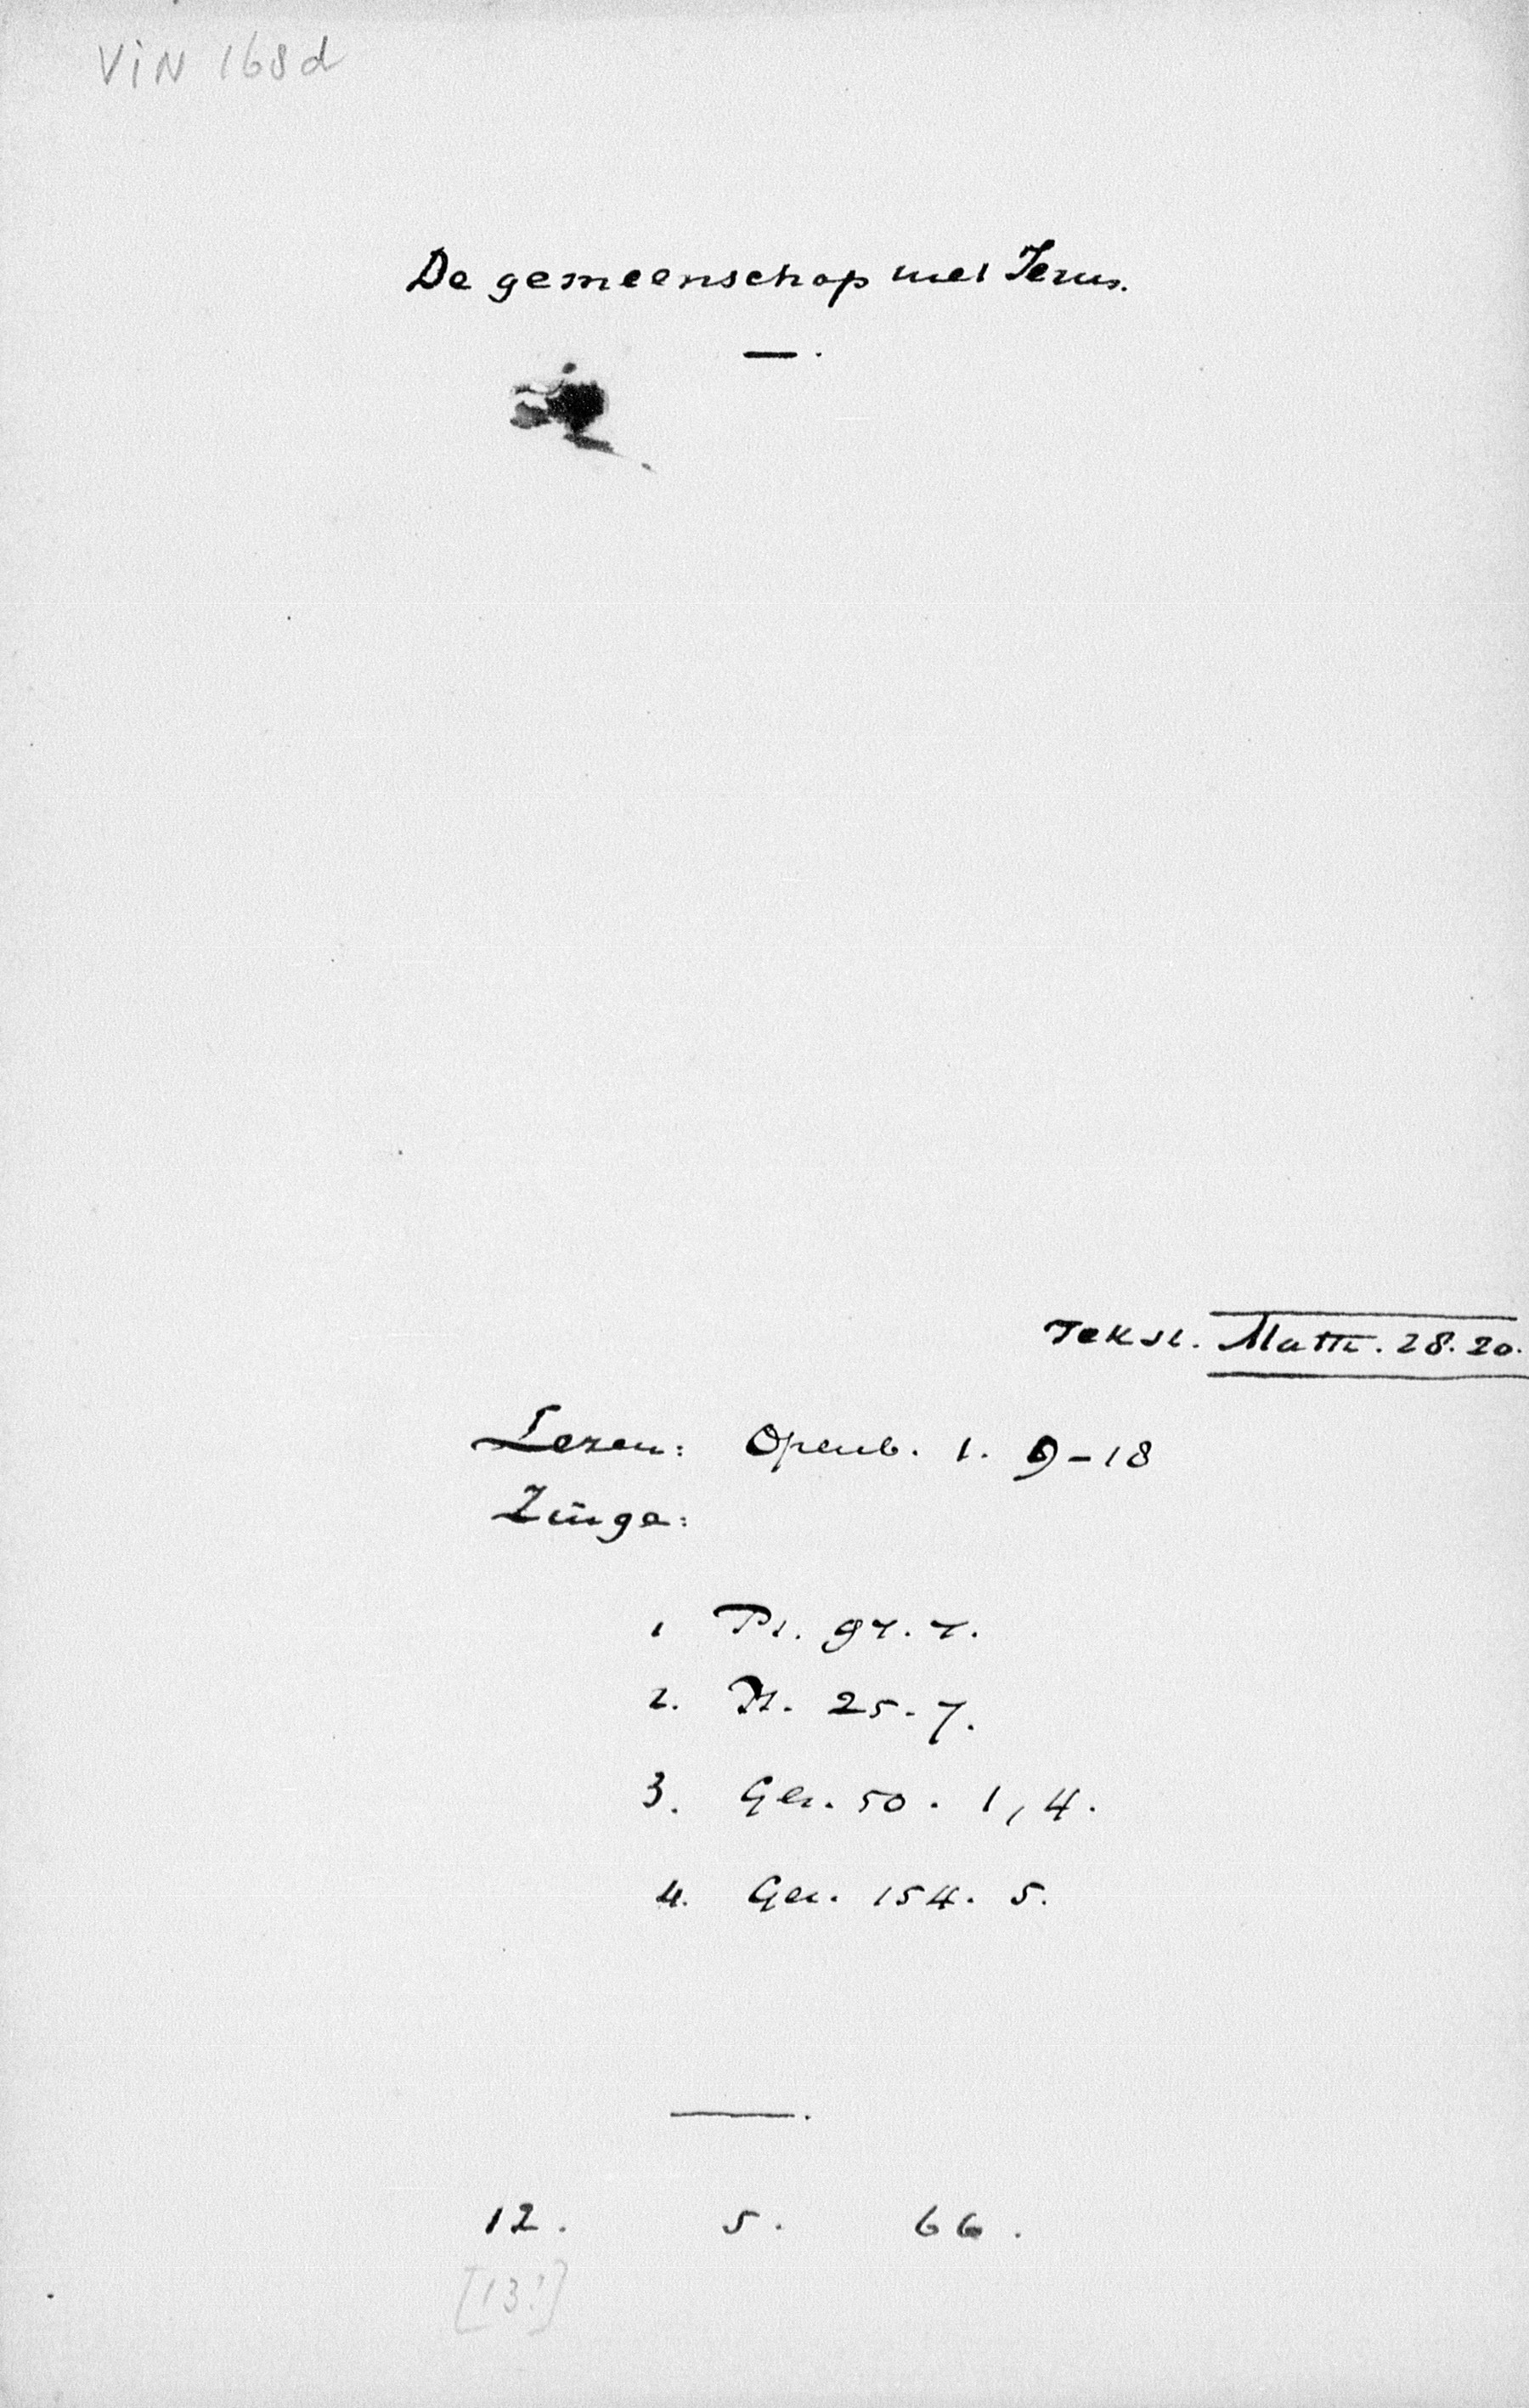 ViN 168d
De gemeenschap met Jezus.
Tekst. Matth. 28. 20.
Lezen: Openb. 1. 9-18
Zinge:
1 Ps.
2. Ps. 25. 7.
3. Gez. 50. 1, 4.
4. Gez. 154. 5.
12. 5. 66.
[13!]